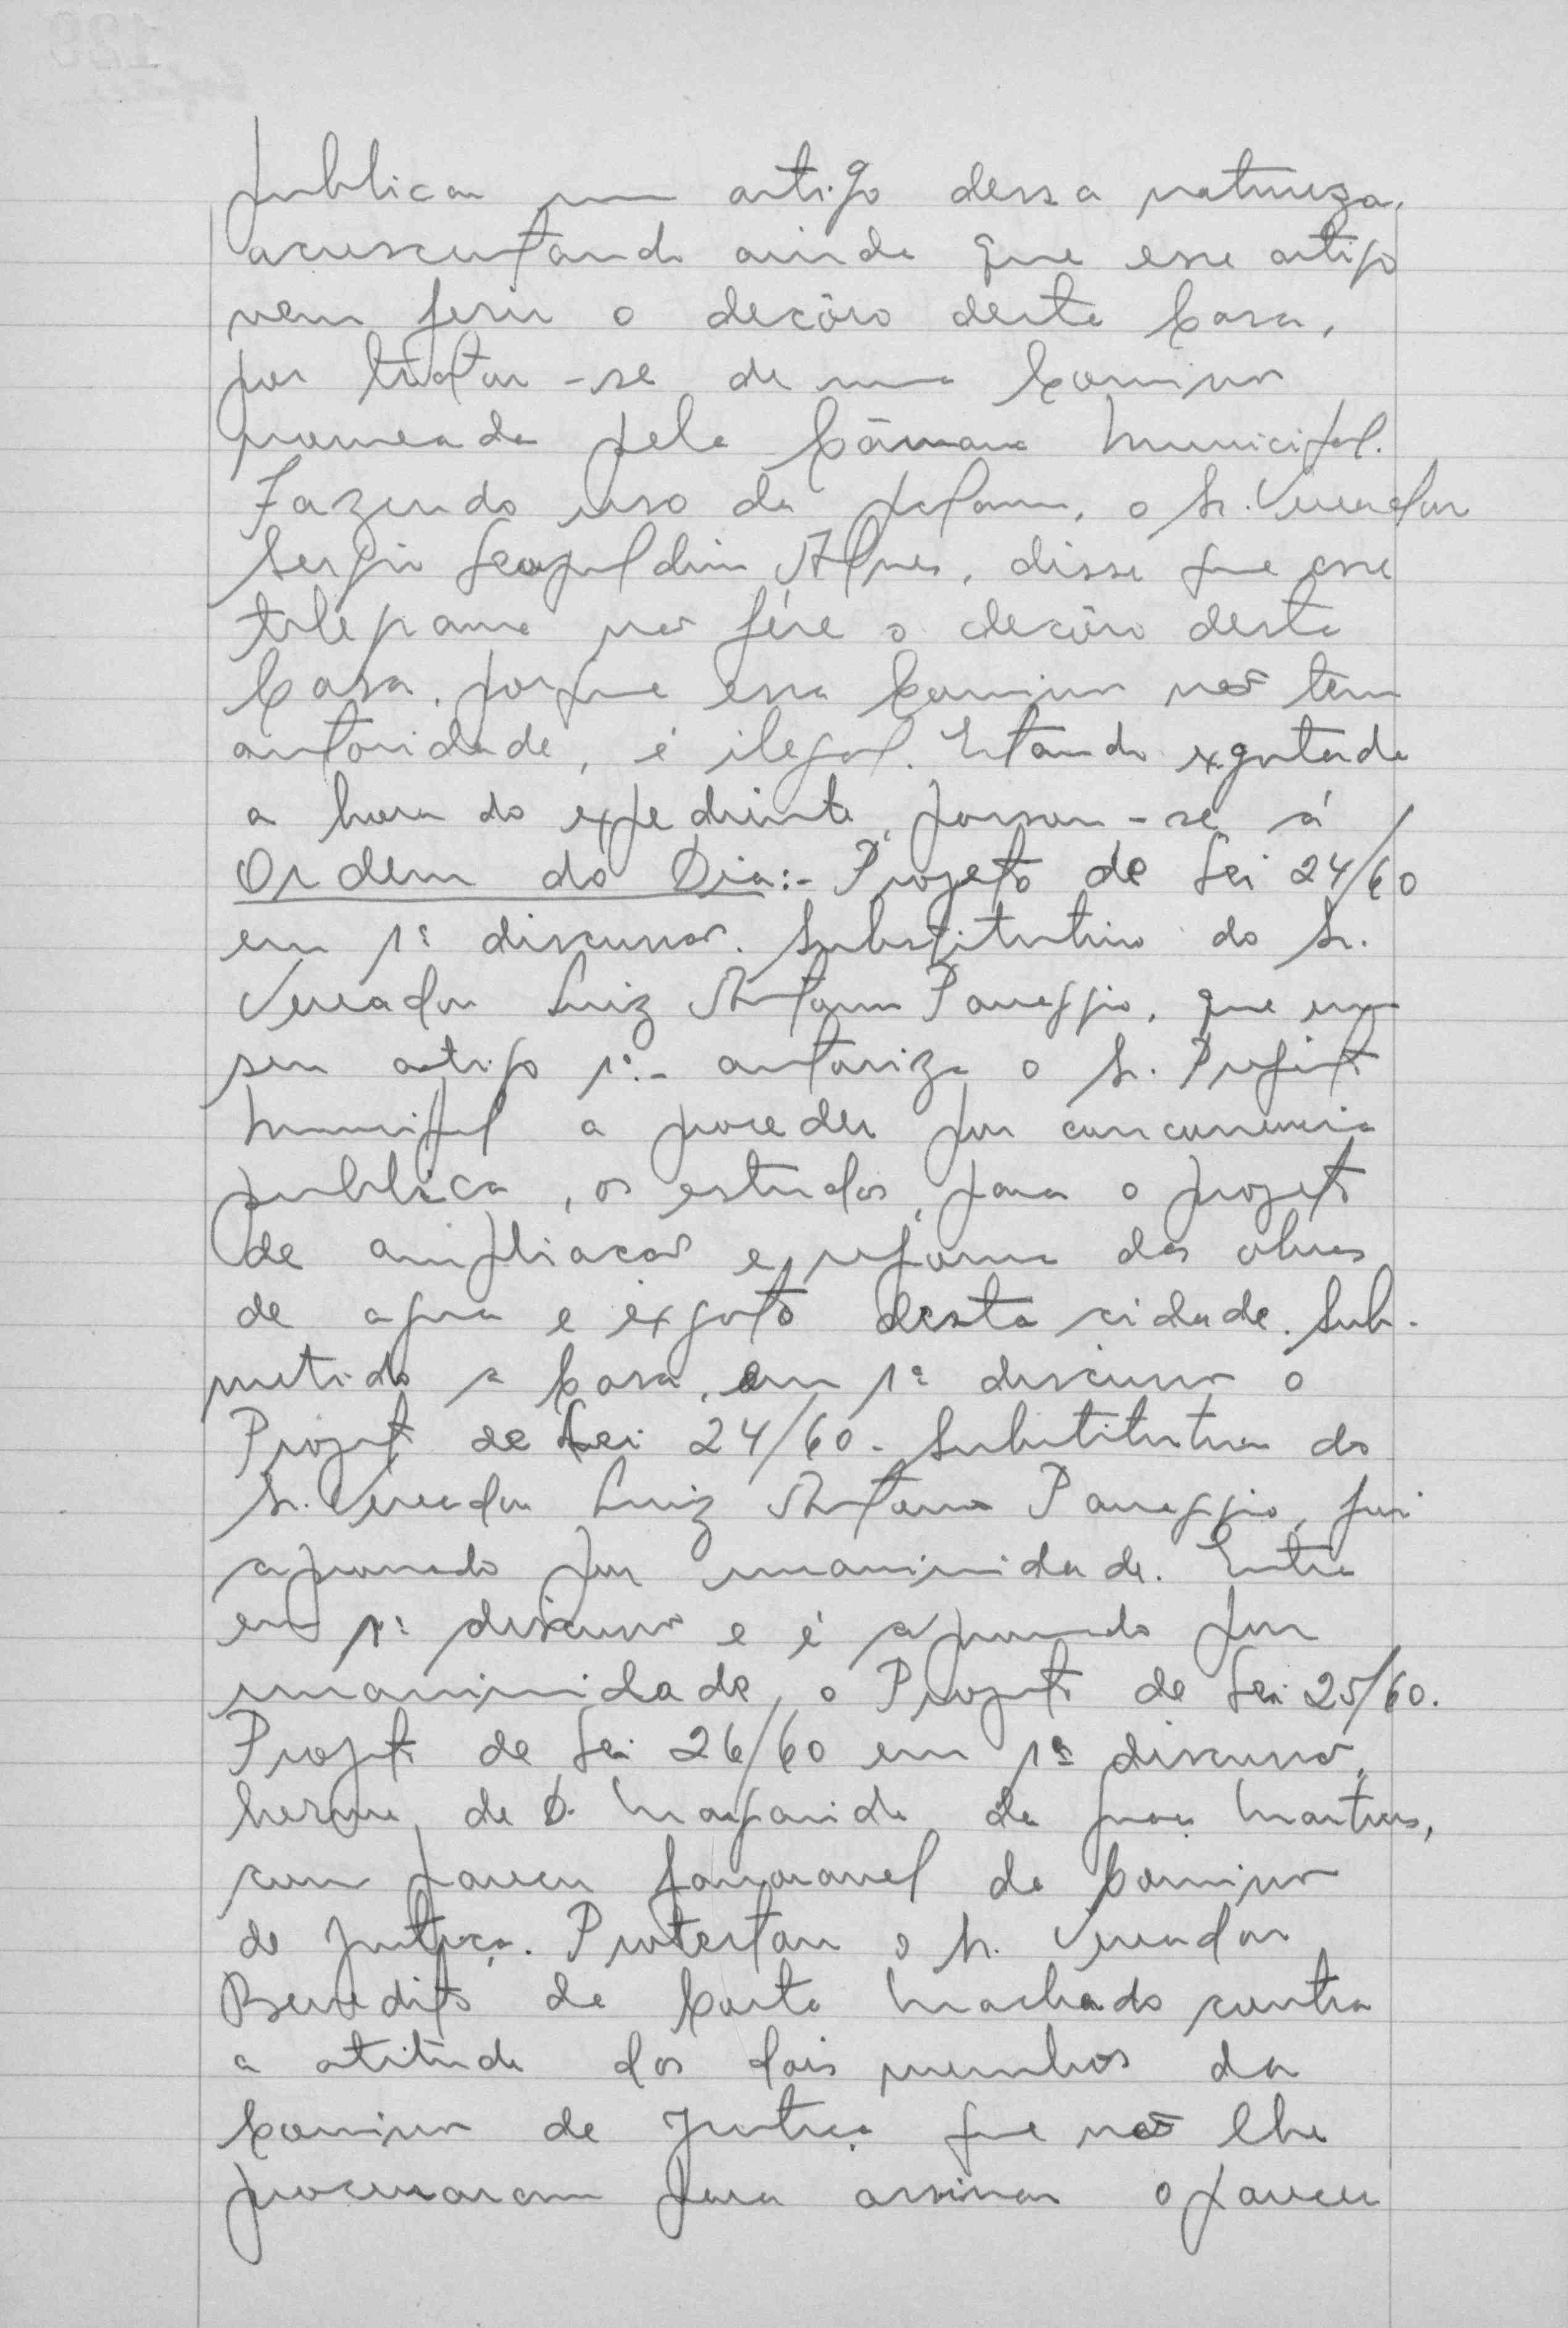 publicar um artigo dessa natureza,
acrescentando ainda que esse artigo
vem ferir o decôro desta Casa,
por tratar-se de uma Comissão
nomeada pela Câmara Municipal.
Fazendo uso da palavra, o Sr. Vereador
Sergio Leopoldino Alves, disse que esse
telegrama não fére o decôro desta
Casa, porque essa Comissão não tem
autoridade, é ilegal. Estando exgotada
a hora do expediente, passou-se á
Ordem do Dia:- Projeto de Lei 24/60
em 1ª discussão. Substitutivo do Sr.
Vereador Luiz Antonio Pareggio, que em
seu artigo 1º- autoriza o Sr. Prefeito
Municipal a proceder por concurrencia
publica, os estudos, para o projeto
de ampliacão e reforma das obras
de agua e exgoto desta cidade. Sub-
metido a Casa, em 1ª discussão o
Projeto de Lei 24/60- Substitutivo do
Sr. Vereador Luiz Antonio Pareggio, foi
aprovado por unanimidade. Entra
em 1ª discussão e é aprovado por
unanimidade, o Projeto de Lei 25/60.
Projeto de Lei 26/60 em 1ª discussão,
herma, de D. Margarida da Graça Martins,
com parecer favoravel da Comissão
de Justiça. Protestou o Sr. Vereador
Benedito da Costa Machado contra
a atitude dos dois membros da
Comissão de Justiça que não lhe
procuraram para assinar o parecer